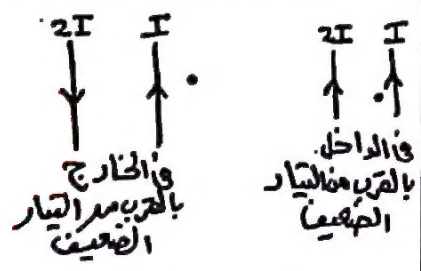 2I I
2I I
في الخارج
بالقرب من التيار
الضعيف
في الداخل
بالقرب من التيار
الضعيف